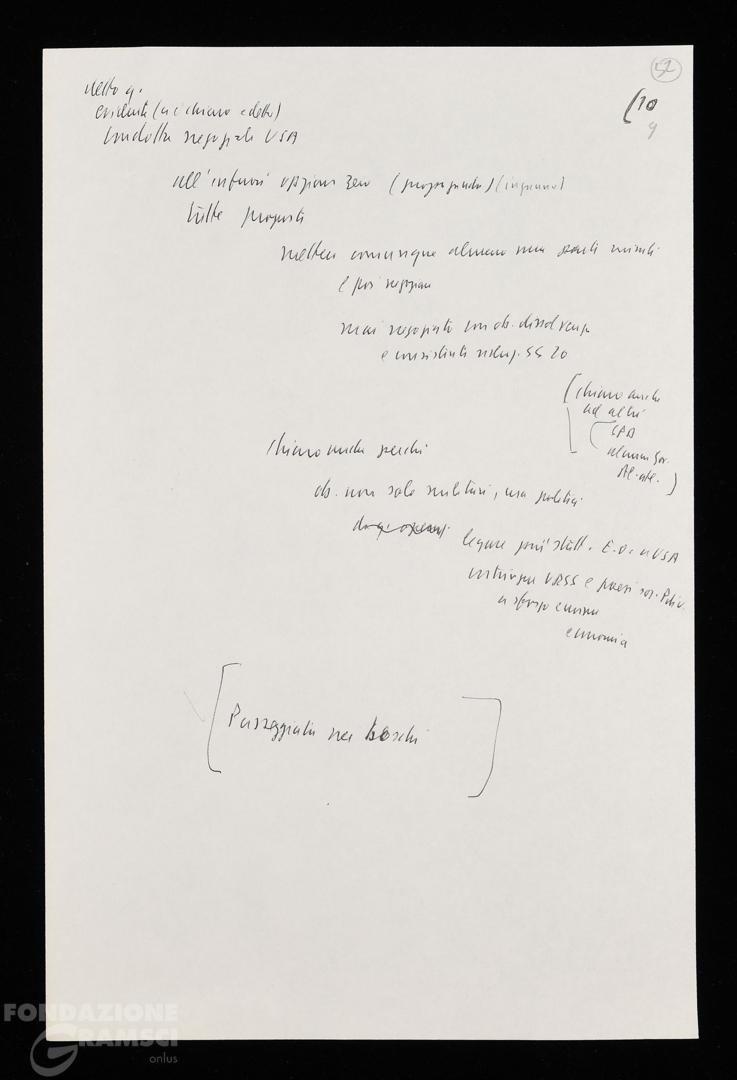 52
(10
9
detto q.
evidente (a è chiaro e detto)
condotta negoziale USA
all'infuori opzione zero (propaganda) (inganno)
tutte proposte
mettere comunque almeno una parte missili
e poi negoziare
mai negoziato con ob. dissolvenza
e consistente riduz. SS 20
[chiaro anche
ad altri
SPD
alcuni gov.
All. atl.)
chiaro anche perché
ob. non solo militari, ma politici
legare più strett. E.O. a USA
costringere URSS e paesi soc.
a sforzo enorme
economia
[Passeggiata nei boschi]
FONDAZIONE
GRAMSCI
onlus